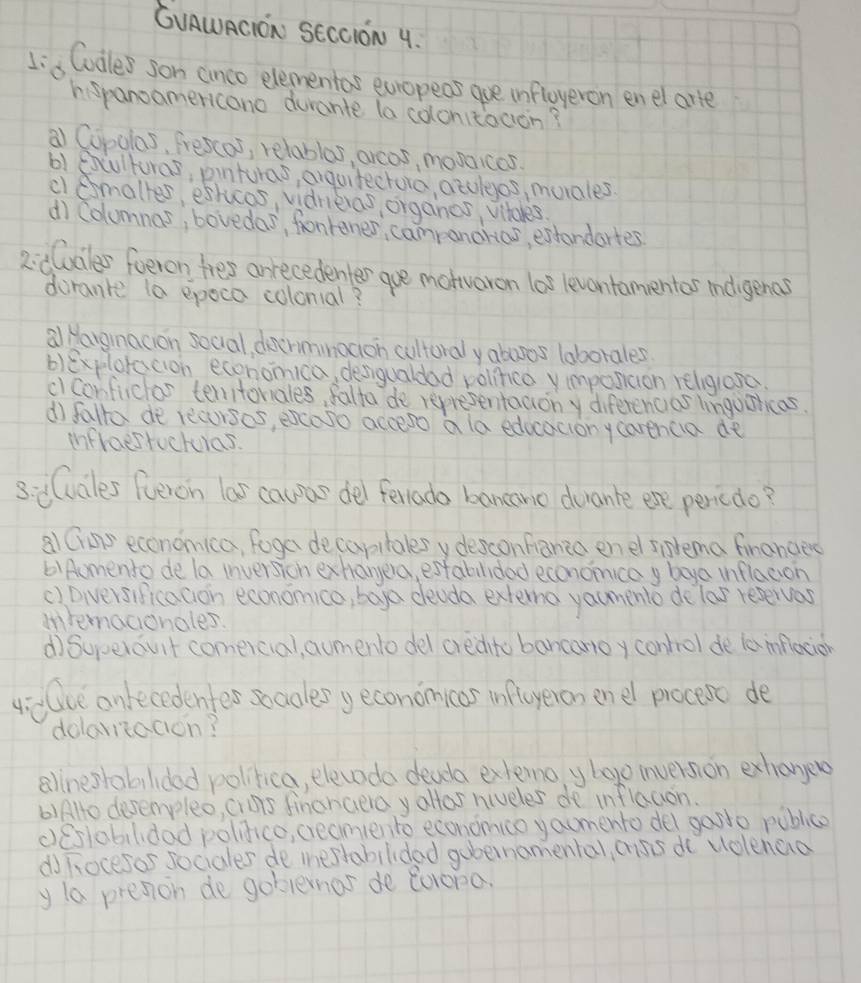 EVALUACIÓN SECCIÓN 4.
1:¿ Cuáles son cinco elementos europeos que influyeron en el arte
hispanoamericano durante la colonización?
a) Cúpulas, frescos, retablos, arcos, mosaicos.
b) Esculturas, pinturas, arquitectura, azulejos, murales.
c) Esmaltes, estucos, vidrieras, órganos, vitales.
d) Columnas, bovedas, frontones, campanarios, estandartes.
2:¿Cuáles fueron tres antecedentes que motivaron los levantamientos indigenas
durante la época colonial?
a) Marginación social, discriminación cultural y abusos laborales.
b) Explotación económica, desigualdad política y imposición religiosa.
c) Conflictos territoriales, falta de representación y diferencias lingüísticas.
d) Falta de recursos, escaso acceso a la educación y carencia de
infraestructuras.
3:¿Cuáles fueron las causas del feriado bancario durante ese periodo?
a) Crisis económica, fuga de capitales y desconfianza en el sistema financiero
b) Aumento de la inversión extranjera, estabilidad económica y baja inflación
c) Diversificación económica, baja deuda externa y aumento de las reservas
internacionales.
d) Superávit comercial, aumento del crédito bancario y control de la inflación
4:¿Qué antecedentes sociales y económicos influyeron en el proceso de
dolarización?
a) inestabilidad política, elevada deuda externa y bajo inversión extranjera
b) Alto desempleo, crisis financiera y altos niveles de inflación.
c) Estabilidad político, crecimiento económico y aumento del gasto público
d) Procesos sociales de inestabilidad gubernamental, crisis de violencia
y la presión de gobiernos de Europa.